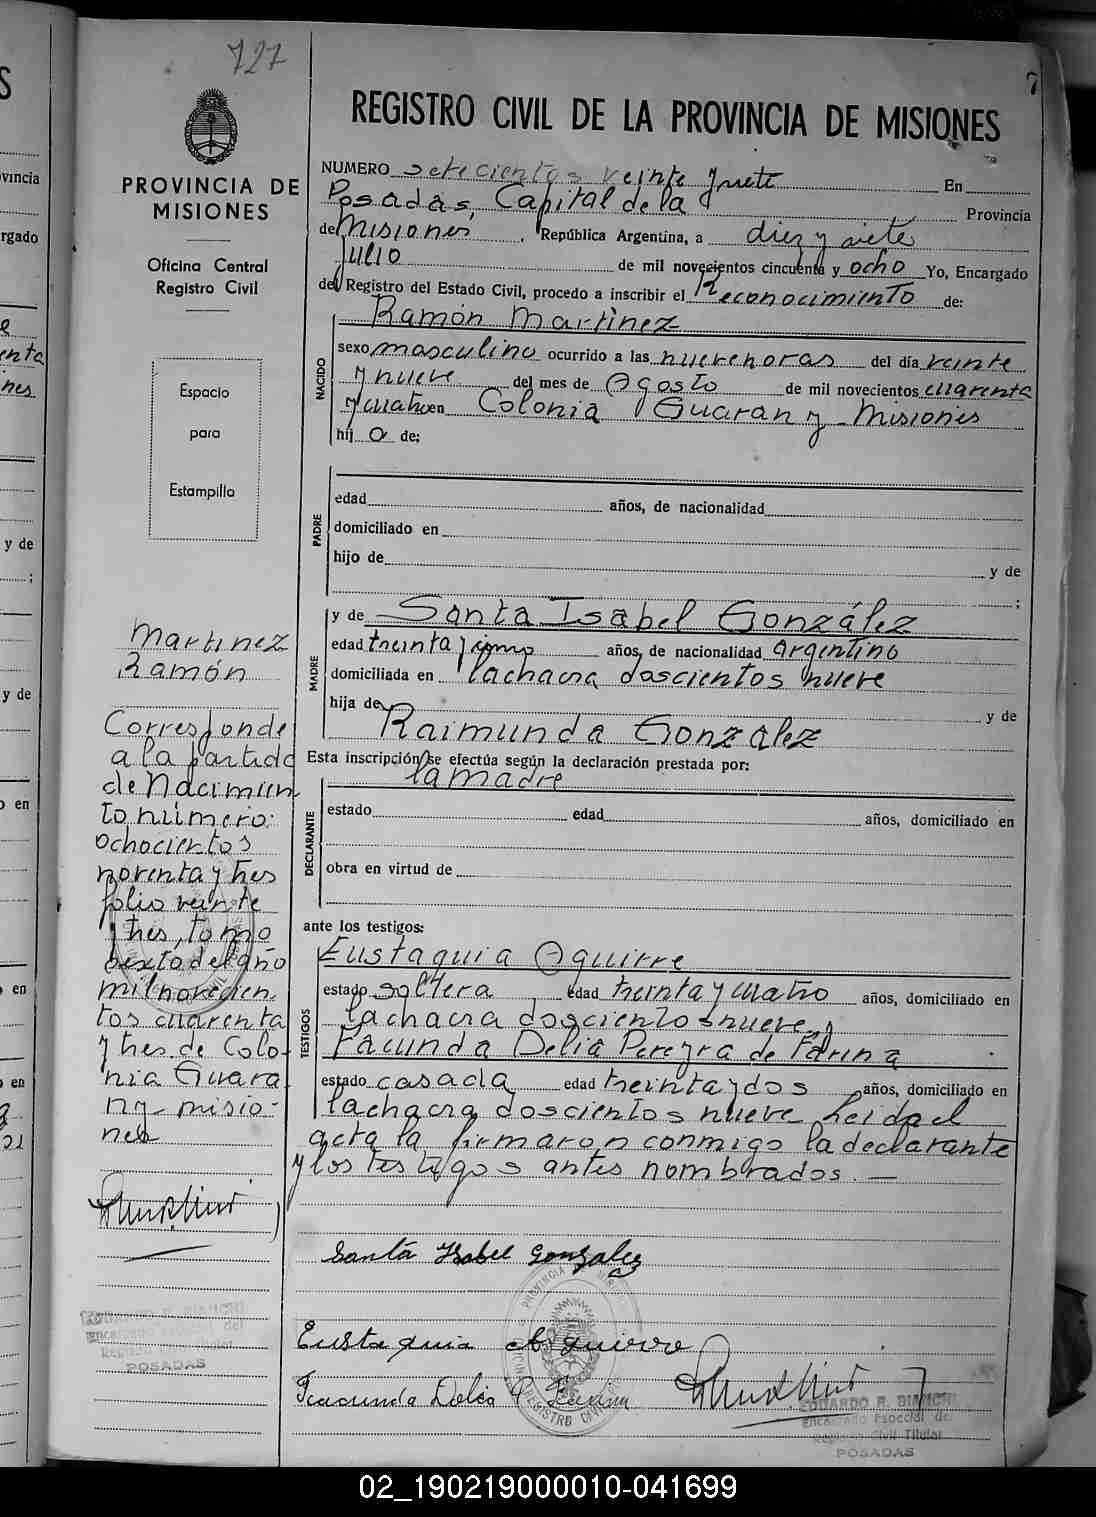 727
7
REGISTRO CIVIL DE LA PROVINCIA DE MISIONES
PROVINCIA DE
MISIONES
Oficina Central
Registro Civil
Espacio
para
Estampilla
NUMERO setecientos veinte y siete En
Posadas, Capital de la Provincia
de Misiones, República Argentina, a diez y siete
Julio de mil novecientos cincuenta y ocho Yo, Encargado
del Registro del Estado Civil, procedo a inscribir el Reconocimiento de:
NACIDO
Ramón Martinez
sexo masculino ocurrido a las nueve horas del día veinte
y nueve del mes de Agosto de mil novecientos cuarenta
y cuatro en Colonia Guarany Misiones
hijo de:
PADRE
edad años, de nacionalidad
domiciliado en
hijo de y de
;
MADRE
y de Santa Isabel González
edad treinta y años, de nacionalidad argentino
domiciliada en la chacra doscientos nueve
hija de y de
Raimunda González
Esta inscripción se efectúa según la declaración prestada por:
la madre
DECLARANTE
estado edad años, domiciliado en
obra en virtud de
ante los testigos:
TESTIGOS
Eustaquia Aguirre
estado soltera edad treinta y cuatro años, domiciliado en
la chacra doscientos nueve y
Facunda Delia Pereyra de Farina
estado casada edad treinta y dos años, domiciliado en
la chacra doscientos nueve Leida el
acta la firmaron conmigo la declarante
y los testigos antes nombrados. —
Santa Isabel Gonzalez
Eustaquia Aguirre
Facunda Delia P
EDUARDO R. BIANCHI
Encargado Especial del
Registro Civil Titular
POSADAS
Martinez
Ramón
Corresponde
a la partida
de Nacimien
to número:
ochocientos
noventa y tres
folio veinte
y tres, tomo
sexto del año
mil novecien
tos cuarenta
y tres de Colo-
nia Guara
ny misio-
nes
EDUARDO R. BIANCHI
Encargado Especial del
Registro Civil Titular
POSADAS
02_190219000010-041699